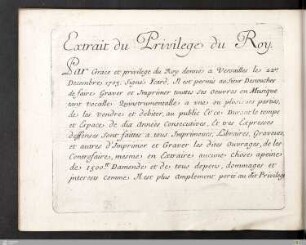 Extrait du Privilege du Roy.
Par Grace et privilege du Roy donnée a Versailles les 22e.
Decembres 1703. Signée Ecard. Il est permis au Sieur
de faire Graver et Imprimer toutes ses œuvres en Musique
tant Vocalle qu'instrumentalle a une ou plusieurs parties,
de les Vendres et debiter, au public Et ce Durant le temps
et Espaces de dix Années Consecutives, Et tres Expresses
deffences Sont faittes a tous Imprimeurs, Libraires, Graveurs,
et autres d'Imprimer et Graver les dites Ouvrages, de les
Contrefaires, mesmes en Extraire aucune chose apeines
de 1500lt. Damende et de tous depens, dommages et
interests Comme Il est plus Amplement porté au dit Privilege